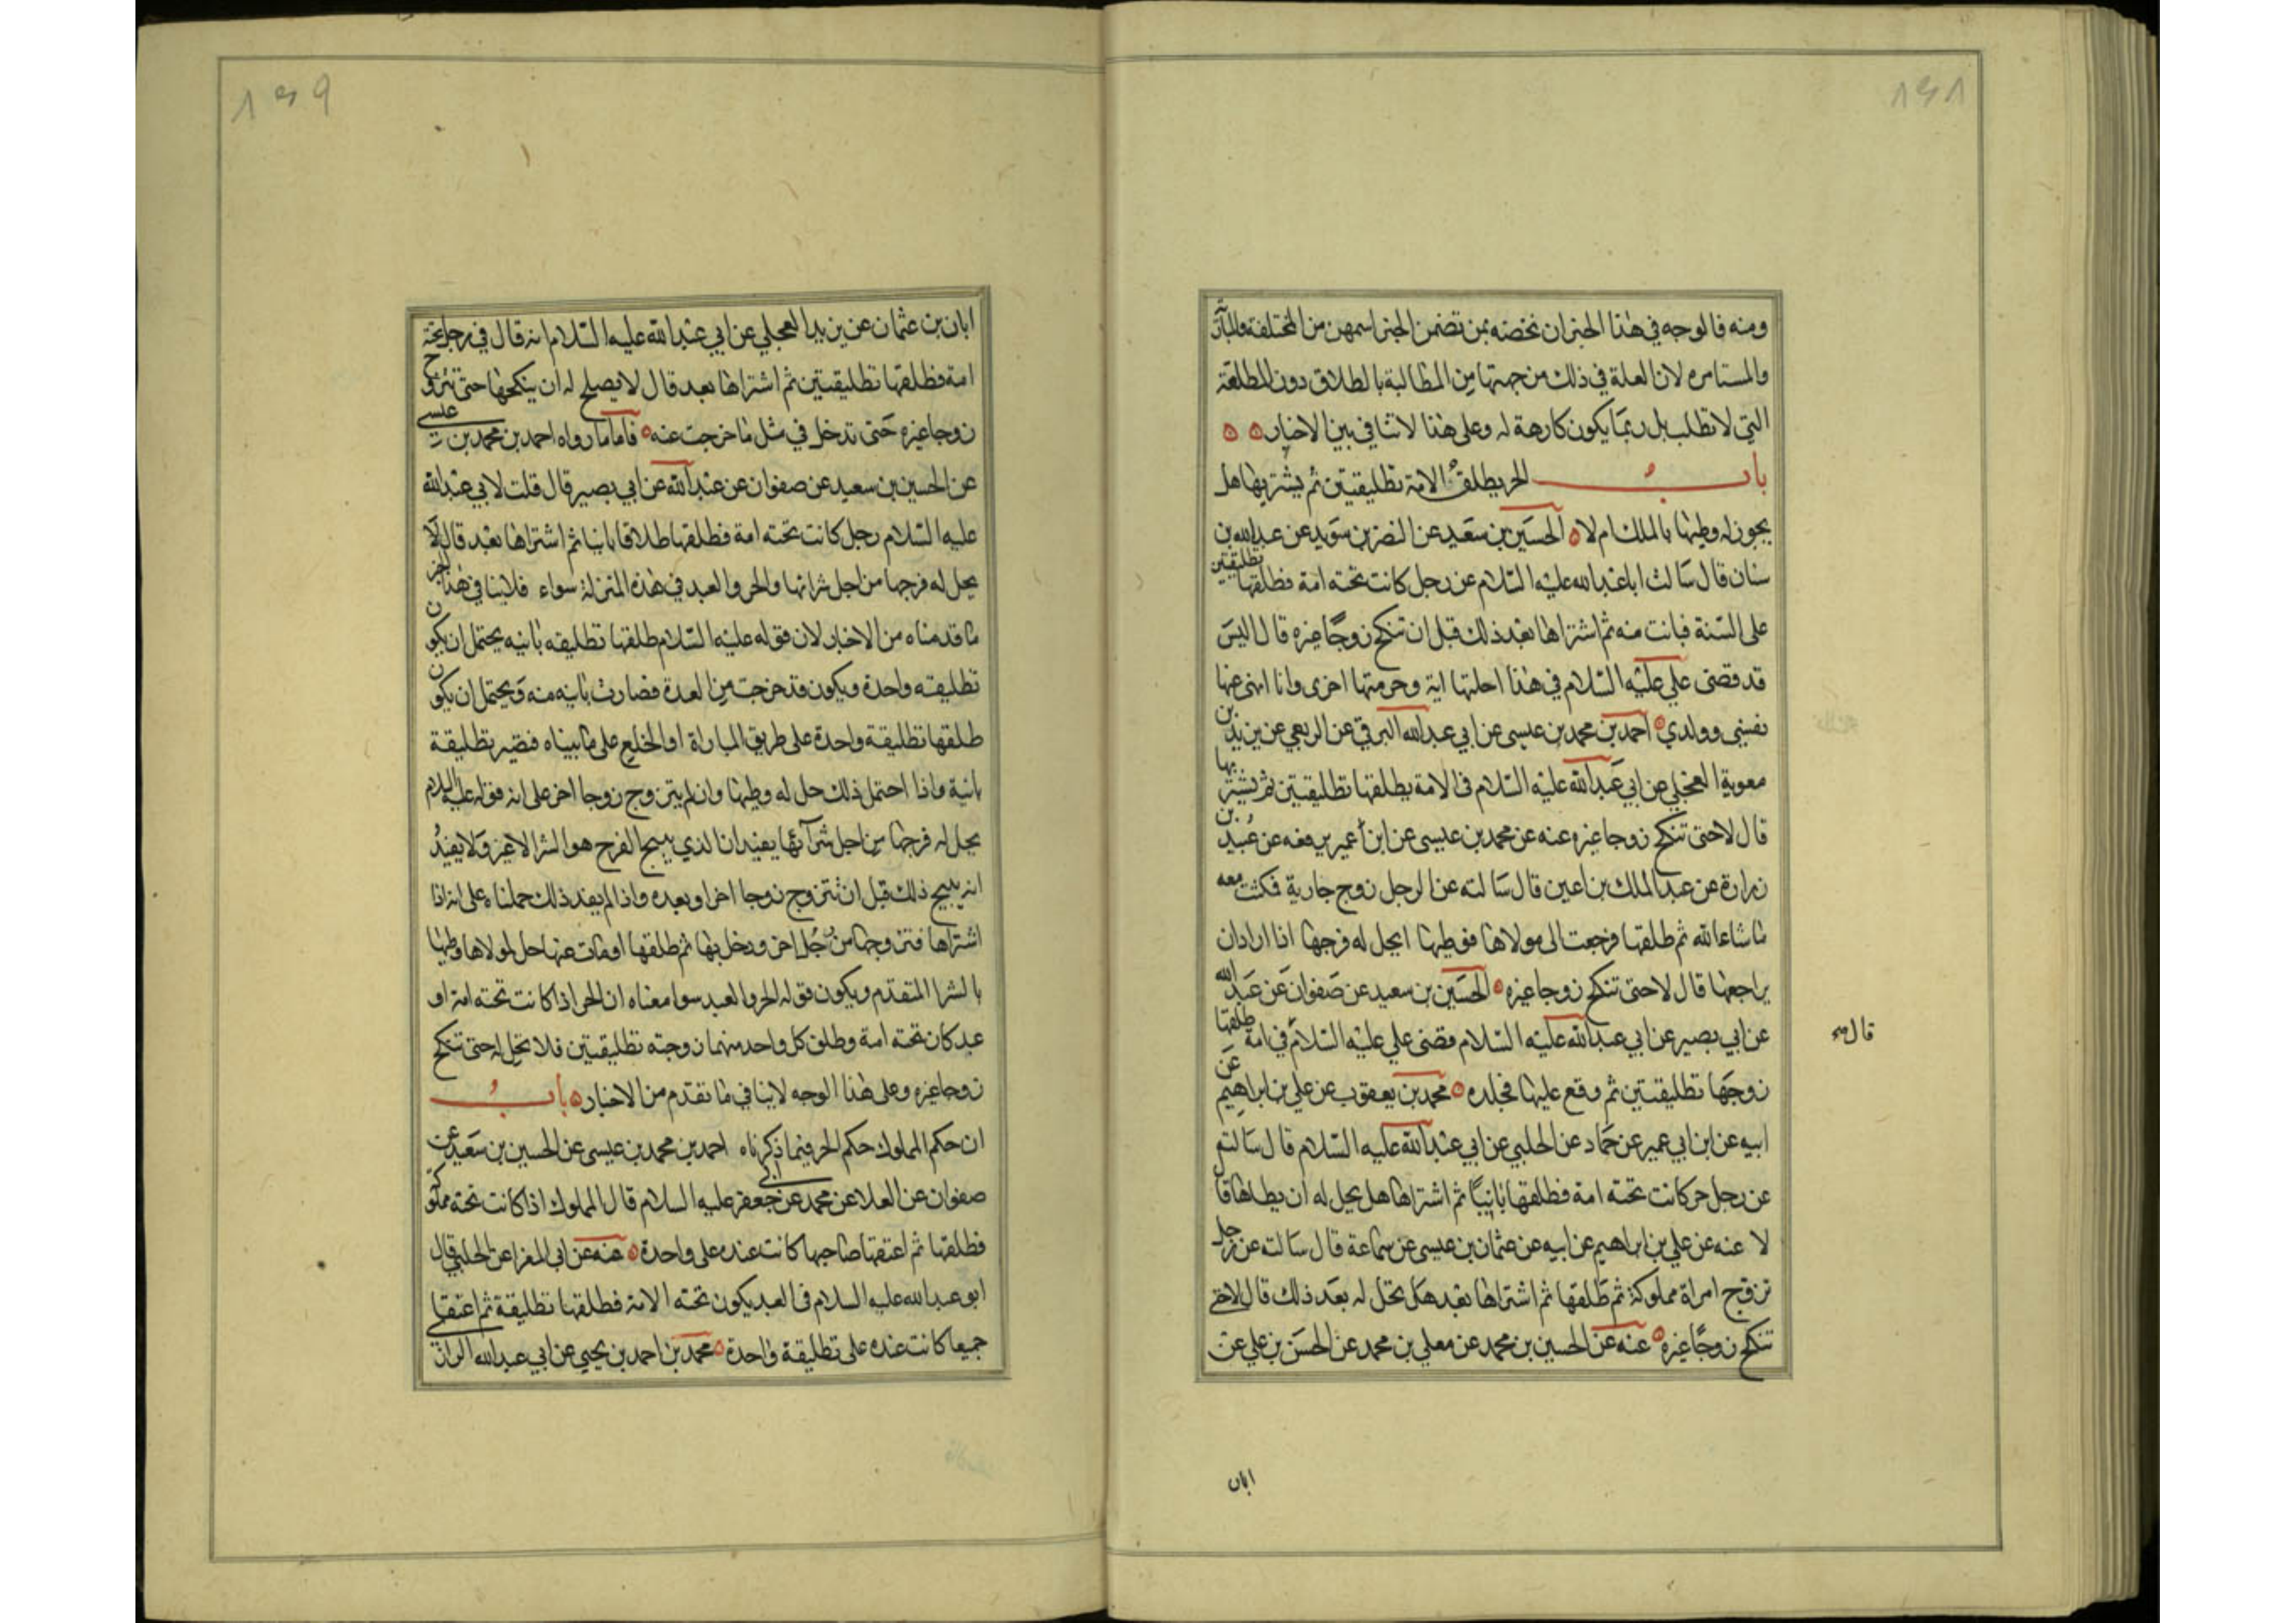 ومنه فالوجه في هذا الخبر ان نخصه بمن تضمن الخبر اسمهن من المختلعة والمبارأة
والمستامره لان العلة في ذلك من جهتها من المطالبة بالطلاق دون المطلقة
التي لا تطلب بل ربما يكون كارهة له وعلى هذا لا تنافي بين الاخبار
باب الحر يطلق الامة تطليقتين ثم يشتريها هل
يجوز له وطيها بالملك ام لا الحسين بن سعيد عن النضر بن سويد عن عبد الله بن
سنان قال سالت ابا عبد الله عليه السلام عن رجل كانت تحته امة فطلقها تطليقتين
على السنة فبانت منه ثم اشتراها بعد ذلك قبل ان تنكح زوجا غيره قال اليس
قد قضى علي عليه السلام في هذا احلتها اية وحرمتها اخرى وانا انهى عنها
نفسي وولدي احمد بن محمد بن عيسى عن ابي عبد الله البرقي عن الربعي عن بريد بن
معوية العجلي عن ابي عبد الله عليه السلام في الامة يطلقها تطليقتين ثم يشتريها
قال لا حتى تنكح زوجا غيره عنه عن محمد بن عيسى عن ابن أعمير يرفعه عن عبيد بن
زرارة عن عبد الملك بن اعين قال سالته عن الرجل زوج جارية فكثت معه
ما شاء الله ثم طلقها فرجعت الى مولاها فوطيها ايحل له فرجها اذا اراد ان
يراجعها قال لا حتى تنكح زوجا غيره الحسين بن سعيد عن صفوان عن عبد الله
عن ابي بصير عن ابي عبد الله عليه السلام قضى علي عليه السلام في امة طلقها
زوجها تطليقتين ثم وقع عليها فجلده محمد بن يعقوب عن علي بن ابراهيم عن
ابيه عن ابن ابي عمير عن حماد عن الحلبي عن ابي عبد الله عليه السلام قال سالته
عن رجل حر كانت تحته امة فطلقها بانيا ثم اشتراها هل يحل له ان يطاها قال
لا عنه عن علي بن ابراهيم عن ابيه عن عثمان بن عيسى عن سماعة قال سالته عن رجل
تزوج امراة مملوكة ثم طلقها ثم اشتراها بعد هل تحل له بعد ذلك قال لا حتى
تنكح زوجا غيره عنه عن الحسين بن محمد عن معلي بن محمد عن الحسن بن علي عن
ابان
ابان بن عثمان عن بريد العجلي عن ابي عبد الله عليه السلام انه قال في رجل تحته
امة فطلقها تطليقتين ثم اشتراها بعد قال لا يصلح له ان ينكحها حتى تتزوج
زوجا غيره حتى تدخل في مثل ما خرجت عنه فاما ما رواه احمد بن محمد بن عيسى
عن الحسين بن سعيد عن صفوان عن عبد الله عن ابي بصير قال قلت لابي عبد الله
عليه السلام رجل كانت تحته امة فطلقها طلاقا بانيا ثم اشتراها بعد قال لا
يحل له فرجها من اجل شرائها والحر والعبد في هذه المنزلة سواء فلا ينافي هذا الخبر
ما قدمناه من الاخبار لان قوله عليه السلام طلقها تطليقه بانيه يحتمل ان يكون
تطليقته واحدة ويكون قد خرجت من العدة فصارت بانيه منه ويحتمل ان يكون
طلقها تطليقة واحدة على طريق المباراة او الخلع على ما بيناه فتصير تطليقة
بانية واذا احتمل ذلك حل له وطيها وان لم يتزوج زوجا اخر على انه قوله عليه السلام
يحل له فرجها من اجل شرآئها يفيد ان الذي يبيح الفرج هو الشرا لا غير ولا يفيد
انه يبيح ذلك قبل ان تتزوج زوجا اخر او بعده واذا لم يفد ذلك حملناه على انه اذا
اشتراها فتزوجها من رجل اخر ودخل بها ثم طلقها او مات عنها حل لمولاها وطيها
بالشرا المتقدم ويكون قوله الحر والعبد سوا معناه ان الحر اذا كانت تحته امة او
عبد كان تحته امة وطلق كل واحد منهما زوجته تطليقتين فلا تحل له حتى تنكح
زوجا غيره وعلى هذا الوجه لا ينافي ما تقدم من الاخبار باب
ان حكم المملوك حكم الحر فيما ذكرناه احمد بن محمد بن عيسى عن الحسين بن سعيد عن
صفوان عن العلا عن محمد عن ابي جعفر عليه السلام قال المملوك اذا كانت تحته مملوكة
فطلقها ثم اعتقها صاحبها كانت عنده على واحدة عنه عن ابي المغرا عن الحلبي قال
ابو عبد الله عليه السلام في العبد يكون تحته الامة فطلقها تطليقة ثم اعتقا
جميعا كانت عنده على تطليقة واحدة محمد بن احمد بن يحيى عن ابي عبد الله الرازي